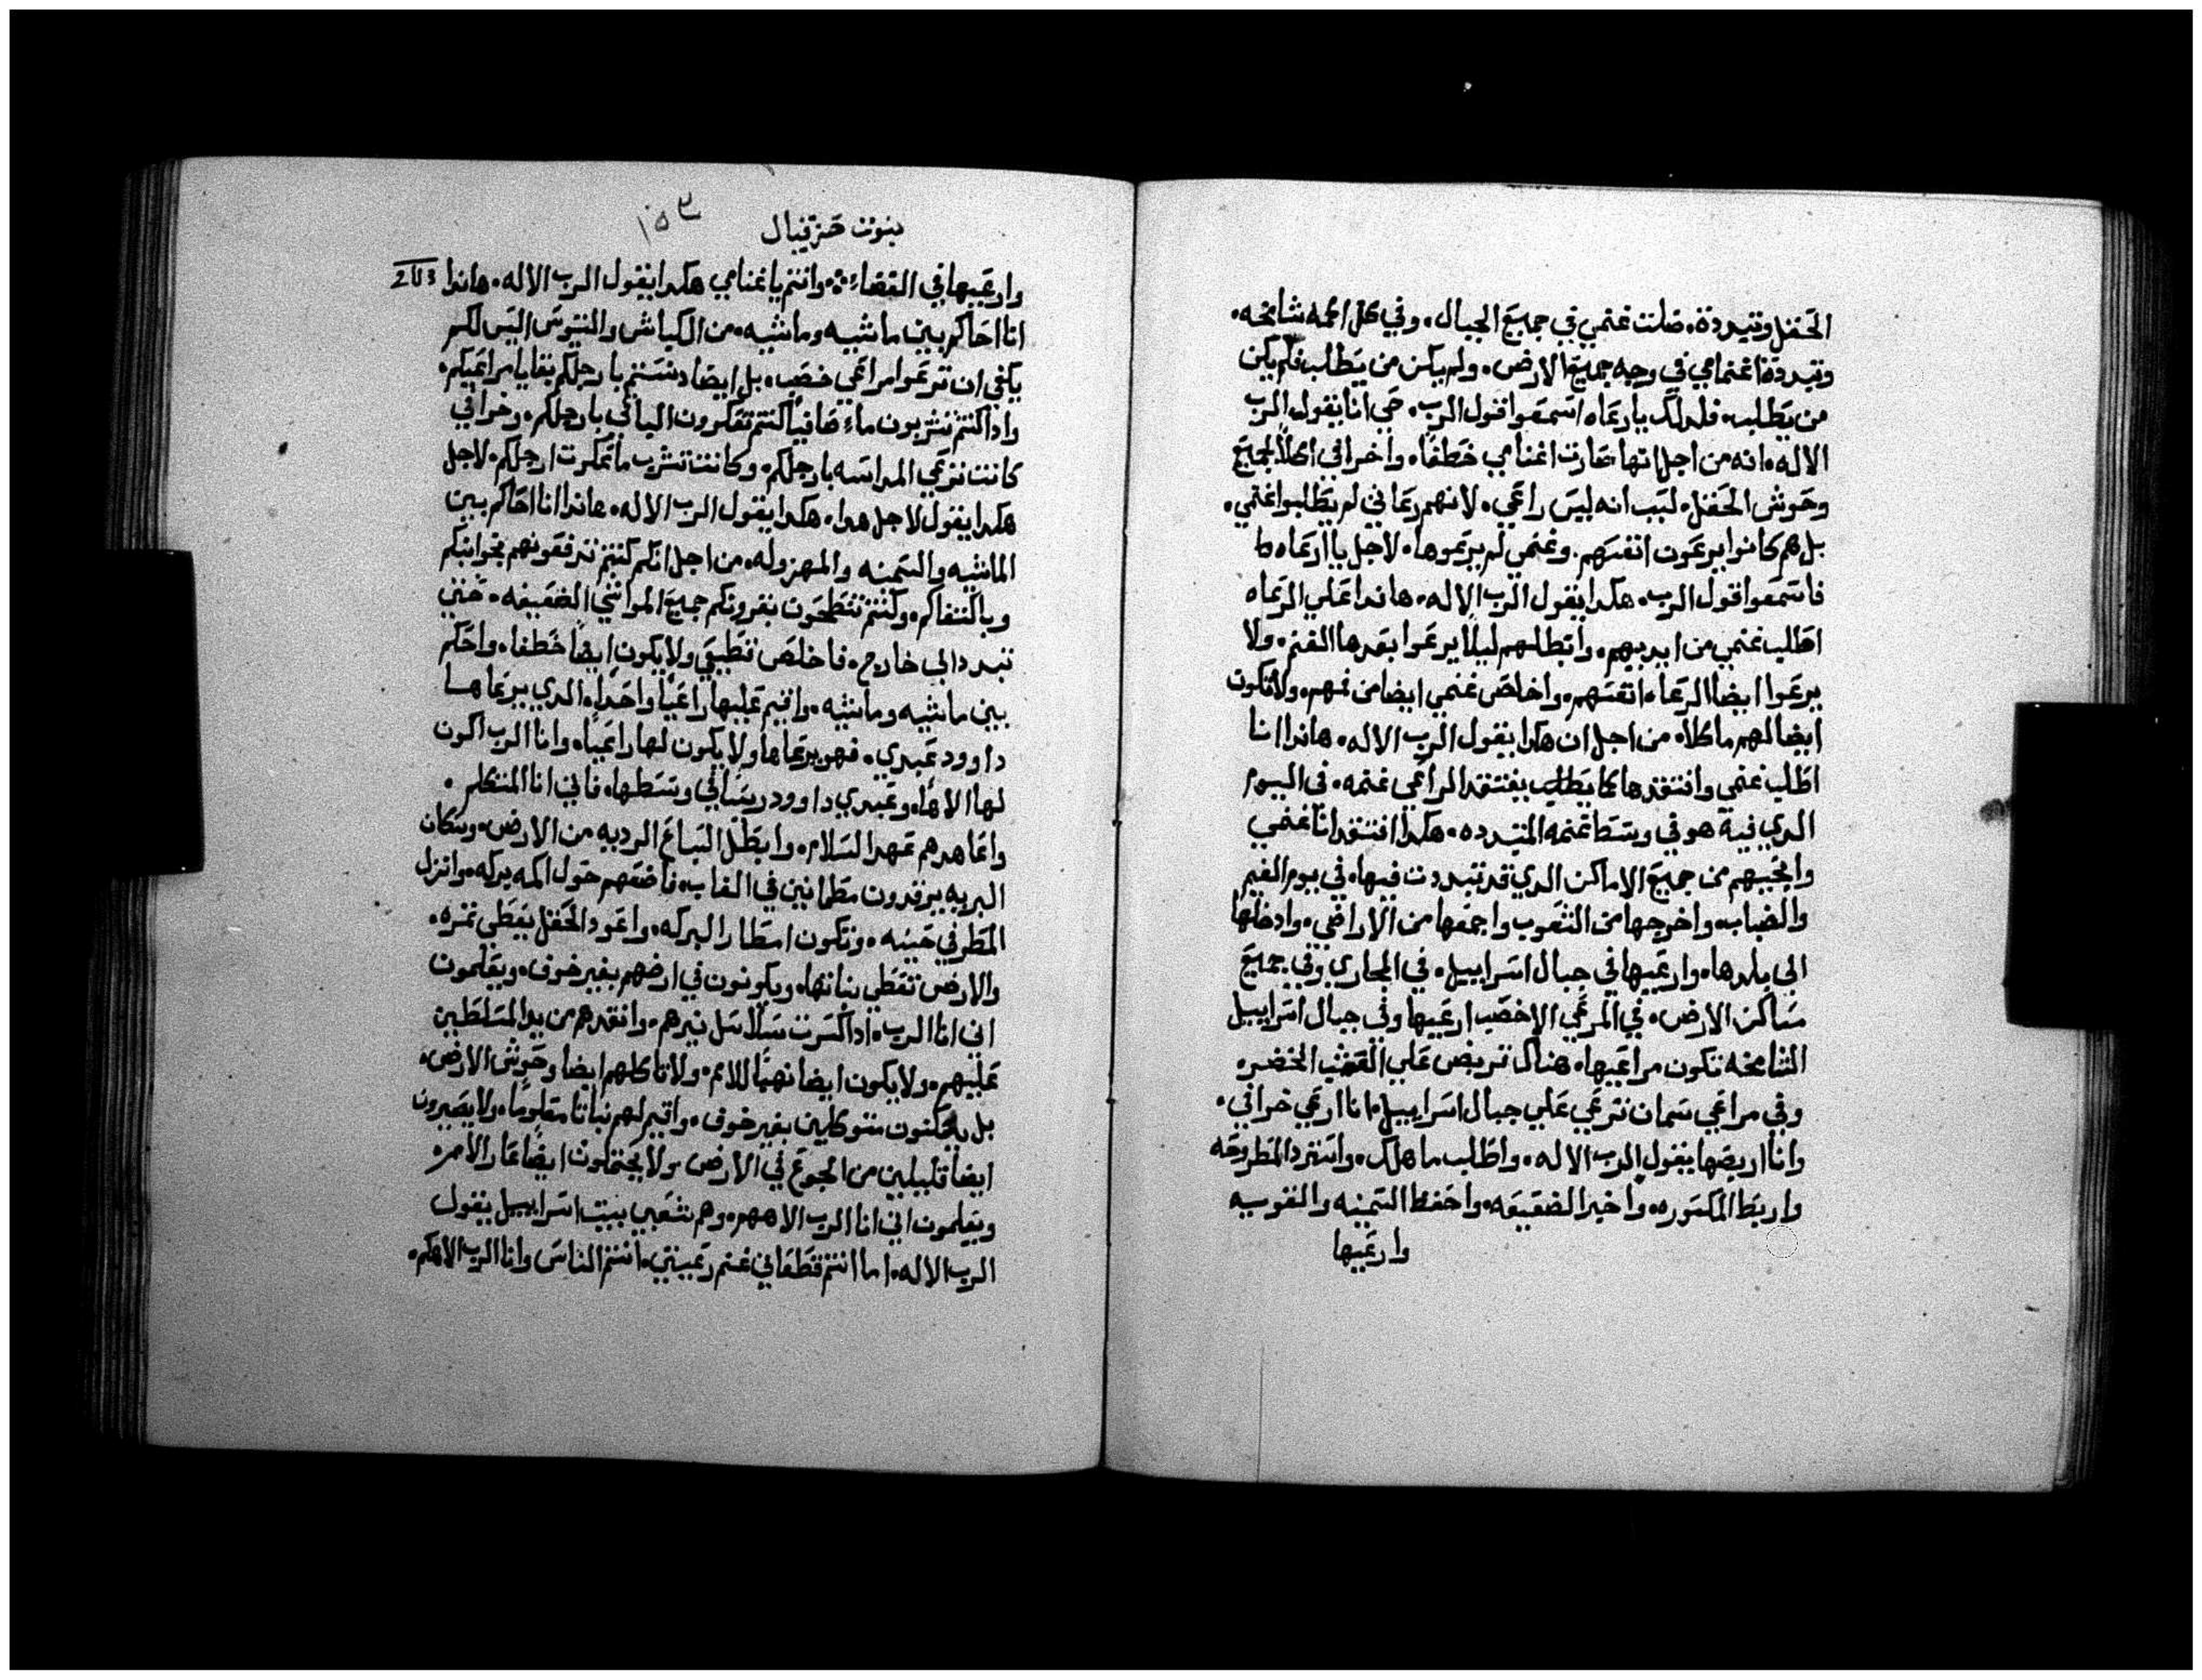 الحقل وتبددة. ضلت غنمي في جميع الجبال. وفي كل اكمه شامخه.
وتبددة اغنامي في وجه جميع الارض. ولم يكن من يطلب فلم يكن
من يطلب. فلدلك يا رعاه اسمعوا قول الرب. حي انا يقول الرب
الاله. انه من اجل انها صارت اغنامي خطفا. واخرافي اكلا لجميع
وحوش الحقل. لسبب انه ليس راعي. لانهم رعاتي لم يطلبوا غنمي.
بل هم كانوا يرعون انفسهم. وغنمي لم يرعوها. لاجل يا ارعاه
فاسمعوا قول الرب. هكدا يقول الرب الاله. هاندا علي الرعاه
اطلب غنمي من ايديهم. وابطلهم ليلا يرعوا بعدها الغنم. ولا
يرعوا ايضا الرعاه انفسهم. واخلص غنمي ايضا من فمهم. ولا تكون
ايضا لهم ماكلا. من اجل ان هكدا يقول الرب الاله. هاندا انا
اطلب غنمي وافتقدها كما يفتقد الراعي غنمه. في اليوم
الدي فية هو في وسط غنمه المتبدده. هكدا افتقد انا غنمي
وانجيهم من جميع الاماكن الدي قد تبددت فيها. في يوم الغيم
والضباب. واخرجها من الشعوب واجمعها من الاراضي. وادخلها
الى بلدها. وارعيها في جبال اسراييل. في المجاري وفي جميع
مساكن الارض. في المرعي الاخصب ارعيها وفي جبال اسراييل
الشامخه تكون مراعيها. هناك تربض علي العشب الخضره
وفي مراعي سمان ترعي علي جبال اسراييل. انا ارعي خرافي.
وانا اربضها يقول الرب الاله. واطلب ما هلك. واسترد المطروحه
واربط المكسوره. واخير الضعيفه. واحفظ السمينه والقويه
وارعيها
نبوت حزقيال
١٥٣
وارعيها في القضاء. وانتم يا غنامي هكدا يقول الرب الاله. هاندا
انا احاكم بين ماشيه وماشيه. من الكباش والتيوس اليس لكم
يكفي ان ترعوا مراعي خصب. بل ايضا دستم بارجلكم بقايا مراعيكم.
وادا كنتم تشربون ماء صافيا كنتم تعكرون الباقي بارجلكم. وخرافي
كانت ترعي المداسه بارجلكم. وكانت تشرب ما عكرت ارجلكم. لاجل
هكدا يقول لاجل هدا. هكدا يقول الرب الاله. هاندا انا احاكم بين
الماشيه والسمينه والمهزوله. من اجل انكم كنتم تدفعونهم بجوانبكم
وباكتفاكم. وكنتم تنطحون بقرونكم جميع المواشي الضعيفه. حتي
تبدد الى خارج. فاخلص قطيعي ولا يكون ايضا خطفا. واحكم
بين ماشيه وماشيه. واقيم عليها راعيا واحدا. الدي يرعاها
داوود عبدي. فهو يرعاها ولا يكون لها راعيا. وانا الرب اكون
لها الاها. وعبدي داوود ريسا في وسطها. فاني انا المتكلم.
واعاهدهم عهد السلام. وابطل السباع الرديه من الارض. وسكان
البريه يرقدون مطمانين في الغاب. فاضعهم حول اكمه بركه. وانزل
المطر في حينه. وتكون امطار البركه. واعود الحقل يعطى ثمره.
والارض تعطي نباتها. ويكونون في ارضهم بغير خوف. ويعلمون
اني انا الرب. ادا كسرت سلاسل نيرهم. وانقدهم من يد المسلطين
عليهم. ولا يكون ايضا نهبا للامم. ولا تاكلهم ايضا وحوش الارض.
بل يسكنون متوكلين بغير خوف. واقيم لهم نباتا معلوما. ولا يصيرون
ايضا قليلين من الجوع في الارض ولا يحتملون ايضا عار الامم.
ويعلمون اني انا الرب الاههم. وهم شعبي بيت اسراييل يقول
الرب الاله. اما انتم قطعاني غنم رعيتي. انتم الناس وانا الرب الاهكم.